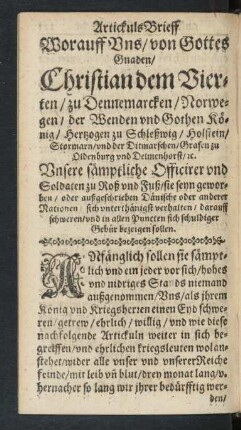 Artickuls Brieff
Worauff Vns/ von Gottes
Gnaden/
Christian dem Vier-
ten/ zu Dennemarcken/ Norwe-
gen/ der Wenden vnd Gothen Kö-
nig/ Hertzogen zu Schleßwig/ Holstein/
Stormarn/ vnd der Ditmarschen/ Grafen zu
Oldenburg vnd Delmenhorst/ ꝛc.
Vnsere sämptliche Officirer vnd
Soldaten zu Roß vnd Fuß/ sie seyn gewor-
ben/ oder außgeschrieben Dänische oder anderer
Nationen/ sich vnterthänigst verhalten/ darauff
schweren/ vnd in allen Puncten sich schuldiger
Gebür bezeigen sollen.
ANfänglich sollen sie sämpt-
lich vnd ein jeder vor sich/ hohes
vnd nidriges Stands niemand
außgenommen/ Vns/ als jhrem
König vnd Kriegsherren einen Eyd schwe-
ren/ getrew/ ehrlich/ willig/ vnd wie diese
nachfolgende Artickuln weiter in sich be-
greiffen/ vnd ehrlichen kriegsleuten wolan-
stehet/ wider alle vnser vnd vnserer Reiche
feinde/ mit leib vñ blut/ drey monat lang/ vñ
hernacher so lang wir jhrer bedürfftig wer-
den/